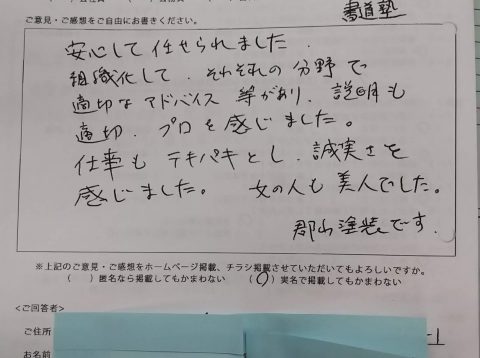 書道塾
ご意見・ご感想をご自由にお書きください。
安心して任せられました．
組織化して．それぞれの分野で
適切なアドバイス等があり．説明も
適切．プロを感じました。
仕事もテキパキとし．誠実さを
感じました。 女の人も美人でした。
郡山塗装です．
※上記のご意見・ご感想をホームページ掲載、チラシ掲載させていただいてもよろしいですか。
（　）匿名なら掲載してもかまわない （○）実名で掲載してもかまわない
<ご回答者>
ご住所
お名前